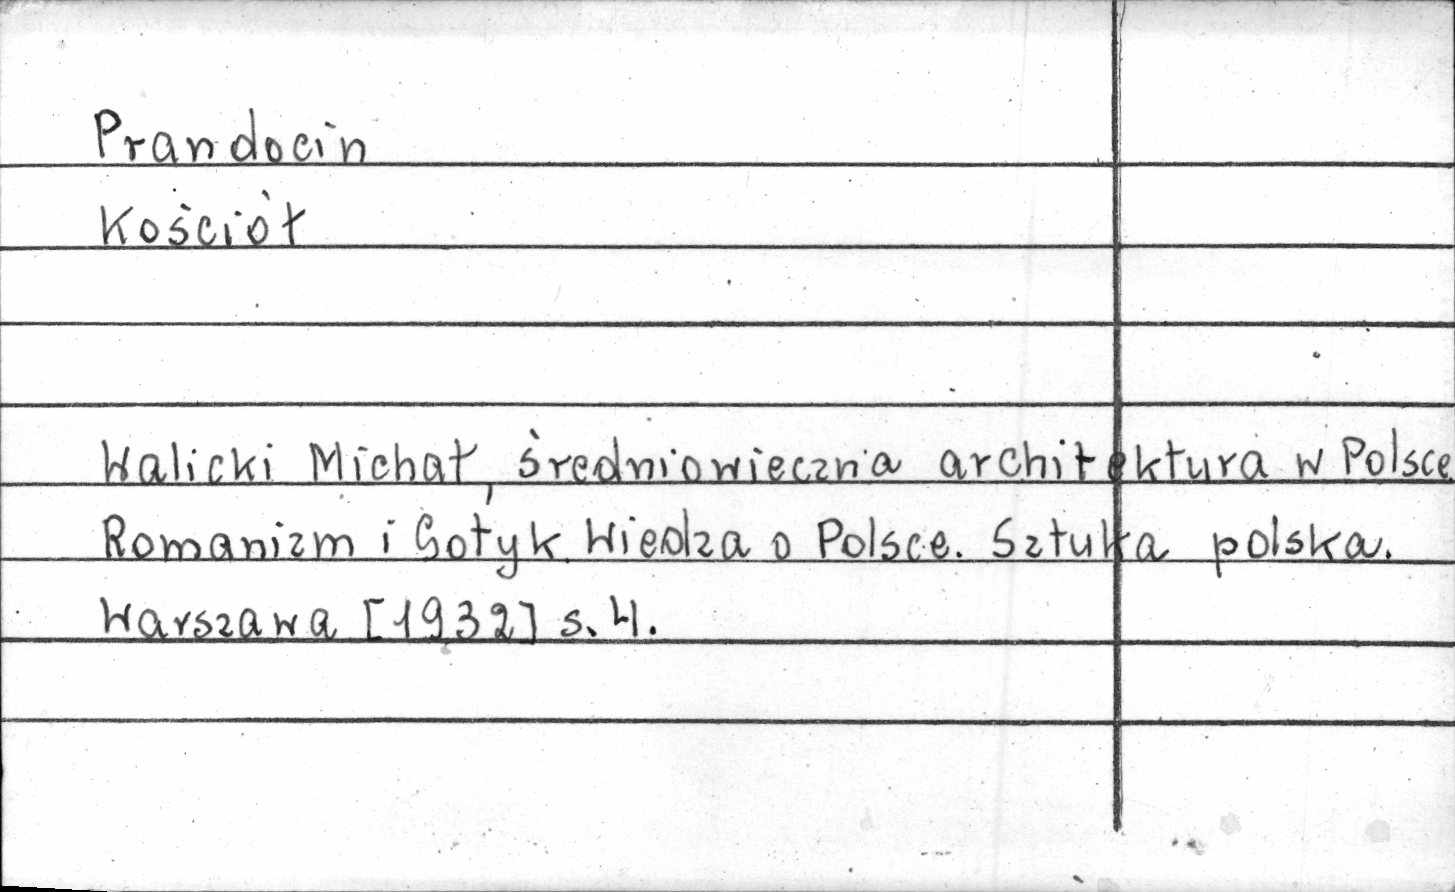 Prandocin
Kościół
Walicki Michał, średniowieczna architektura w Polsce.
Romanizm i Gotyk. Wiedza o Polsce. Sztuka polska.
Warszawa [1932] s. 4.